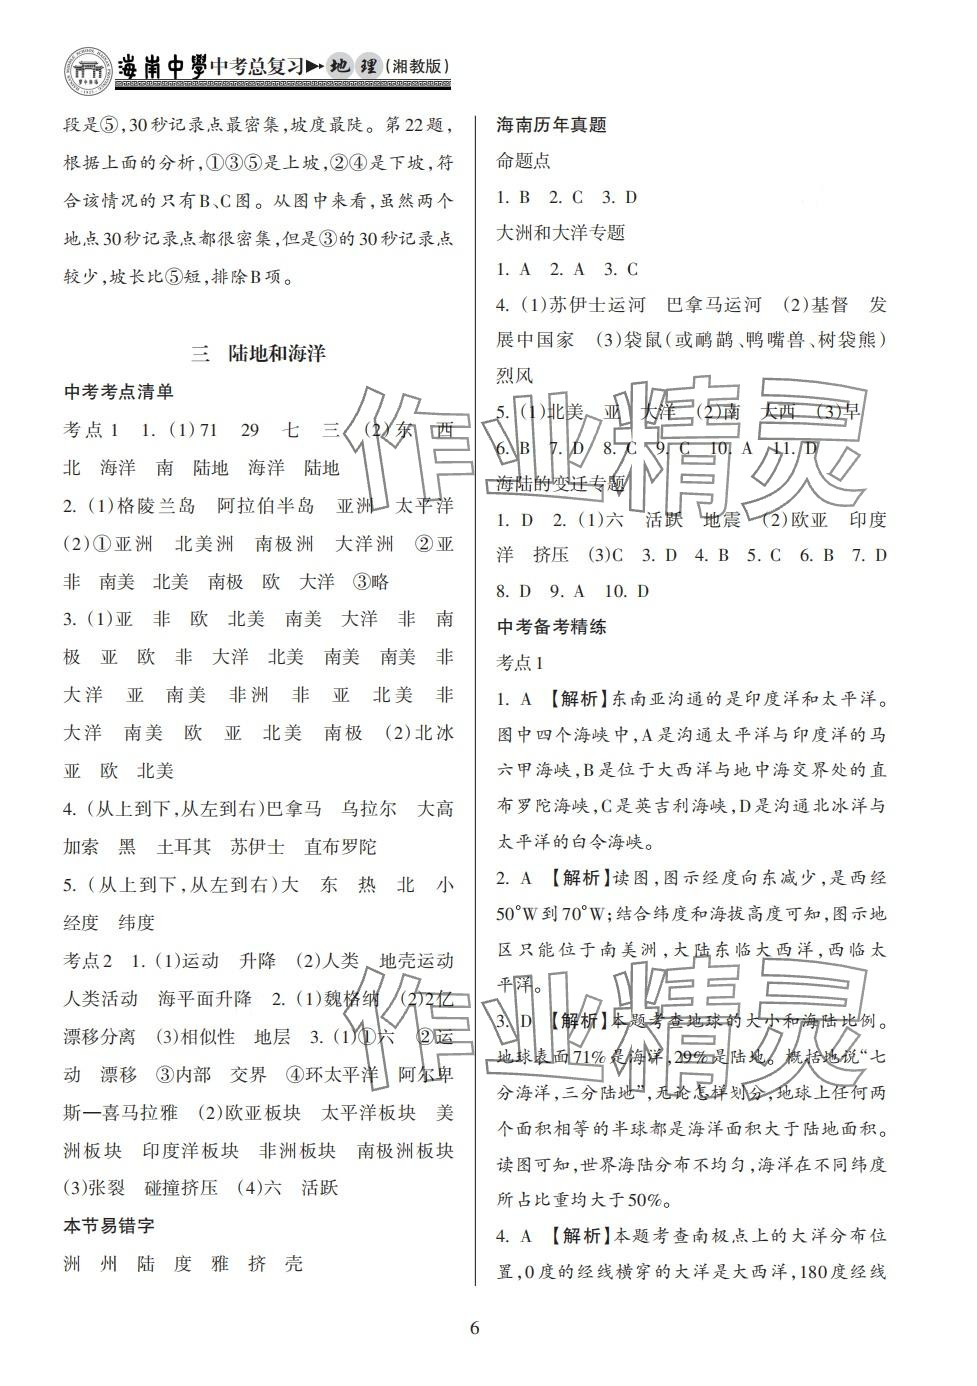 海南中學中考总复习▶▶地理(湘教版)
段是⑤,30秒记录点最密集,坡度最陡。第22题,
根据上面的分析,①③⑤是上坡,②④是下坡,符
合该情况的只有B、C图。从图中来看,虽然两个
地点30秒记录点都很密集,但是③的30秒记录点
较少,坡长比⑤短,排除B项。
三 陆地和海洋
中考考点清单
考点1 1. (1)71 29 七 三 (2)东 西
北 海洋 南 陆地 海洋 陆地
2. (1)格陵兰岛 阿拉伯半岛 亚洲 太平洋
(2)①亚洲 北美洲 南极洲 大洋洲 ②亚
非 南美 北美 南极 欧 大洋 ③略
3. (1)亚 非 欧 北美 南美 大洋 非 南
极 亚 欧 非 大洋 北美 南美 南美 非
大洋 亚 南美 非洲 非 亚 北美 非
大洋 南美 欧 亚 北美 南极 (2)北冰
亚 欧 北美
4. (从上到下,从左到右)巴拿马 乌拉尔 大高
加索 黑 土耳其 苏伊士 直布罗陀
5. (从上到下,从左到右)大 东 热 北 小
经度 纬度
考点2 1. (1)运动 升降 (2)人类 地壳运动
人类活动 海平面升降 2. (1)魏格纳 (2)2亿
漂移分离 (3)相似性 地层 3. (1)①六 ②运
动 漂移 ③内部 交界 ④环太平洋 阿尔卑
斯—喜马拉雅 (2)欧亚板块 太平洋板块 美
洲板块 印度洋板块 非洲板块 南极洲板块
(3)张裂 碰撞挤压 (4)六 活跃
本节易错字
洲 州 陆 度 雅 挤 壳
海南历年真题
命题点
1. B 2. C 3. D
大洲和大洋专题
1. A 2. A 3. C
4. (1)苏伊士运河 巴拿马运河 (2)基督 发
展中国家 (3)袋鼠(或鸸鹋、鸭嘴兽、树袋熊)
烈风
5. (1)北美 亚 大洋 (2)南 大西 (3)早
6. B 7. D 8. C 9. C 10. A 11. D
海陆的变迁专题
1. D 2. (1)六 活跃 地震 (2)欧亚 印度
洋 挤压 (3)C 3. D 4. B 5. C 6. B 7. D
8. D 9. A 10. D
中考备考精练
考点1
1. A 【解析】东南亚沟通的是印度洋和太平洋。
图中四个海峡中,A是沟通太平洋与印度洋的马
六甲海峡,B是位于大西洋与地中海交界处的直
布罗陀海峡,C是英吉利海峡,D是沟通北冰洋与
太平洋的白令海峡。
2. A 【解析】读图,图示经度向东减少,是西经
50°W到70°W;结合纬度和海拔高度可知,图示地
区只能位于南美洲,大陆东临大西洋,西临太
平洋。
3. D 【解析】本题考查地球的大小和海陆比例。
地球表面71%是海洋,29%是陆地。概括地说“七
分海洋,三分陆地”,无论怎样划分,地球上任何两
个面积相等的半球都是海洋面积大于陆地面积。
读图可知,世界海陆分布不均匀,海洋在不同纬度
所占比重均大于50%。
4. A 【解析】本题考查南极点上的大洋分布位
置,0度的经线横穿的大洋是大西洋,180度经线
作业精灵
作业精灵
6